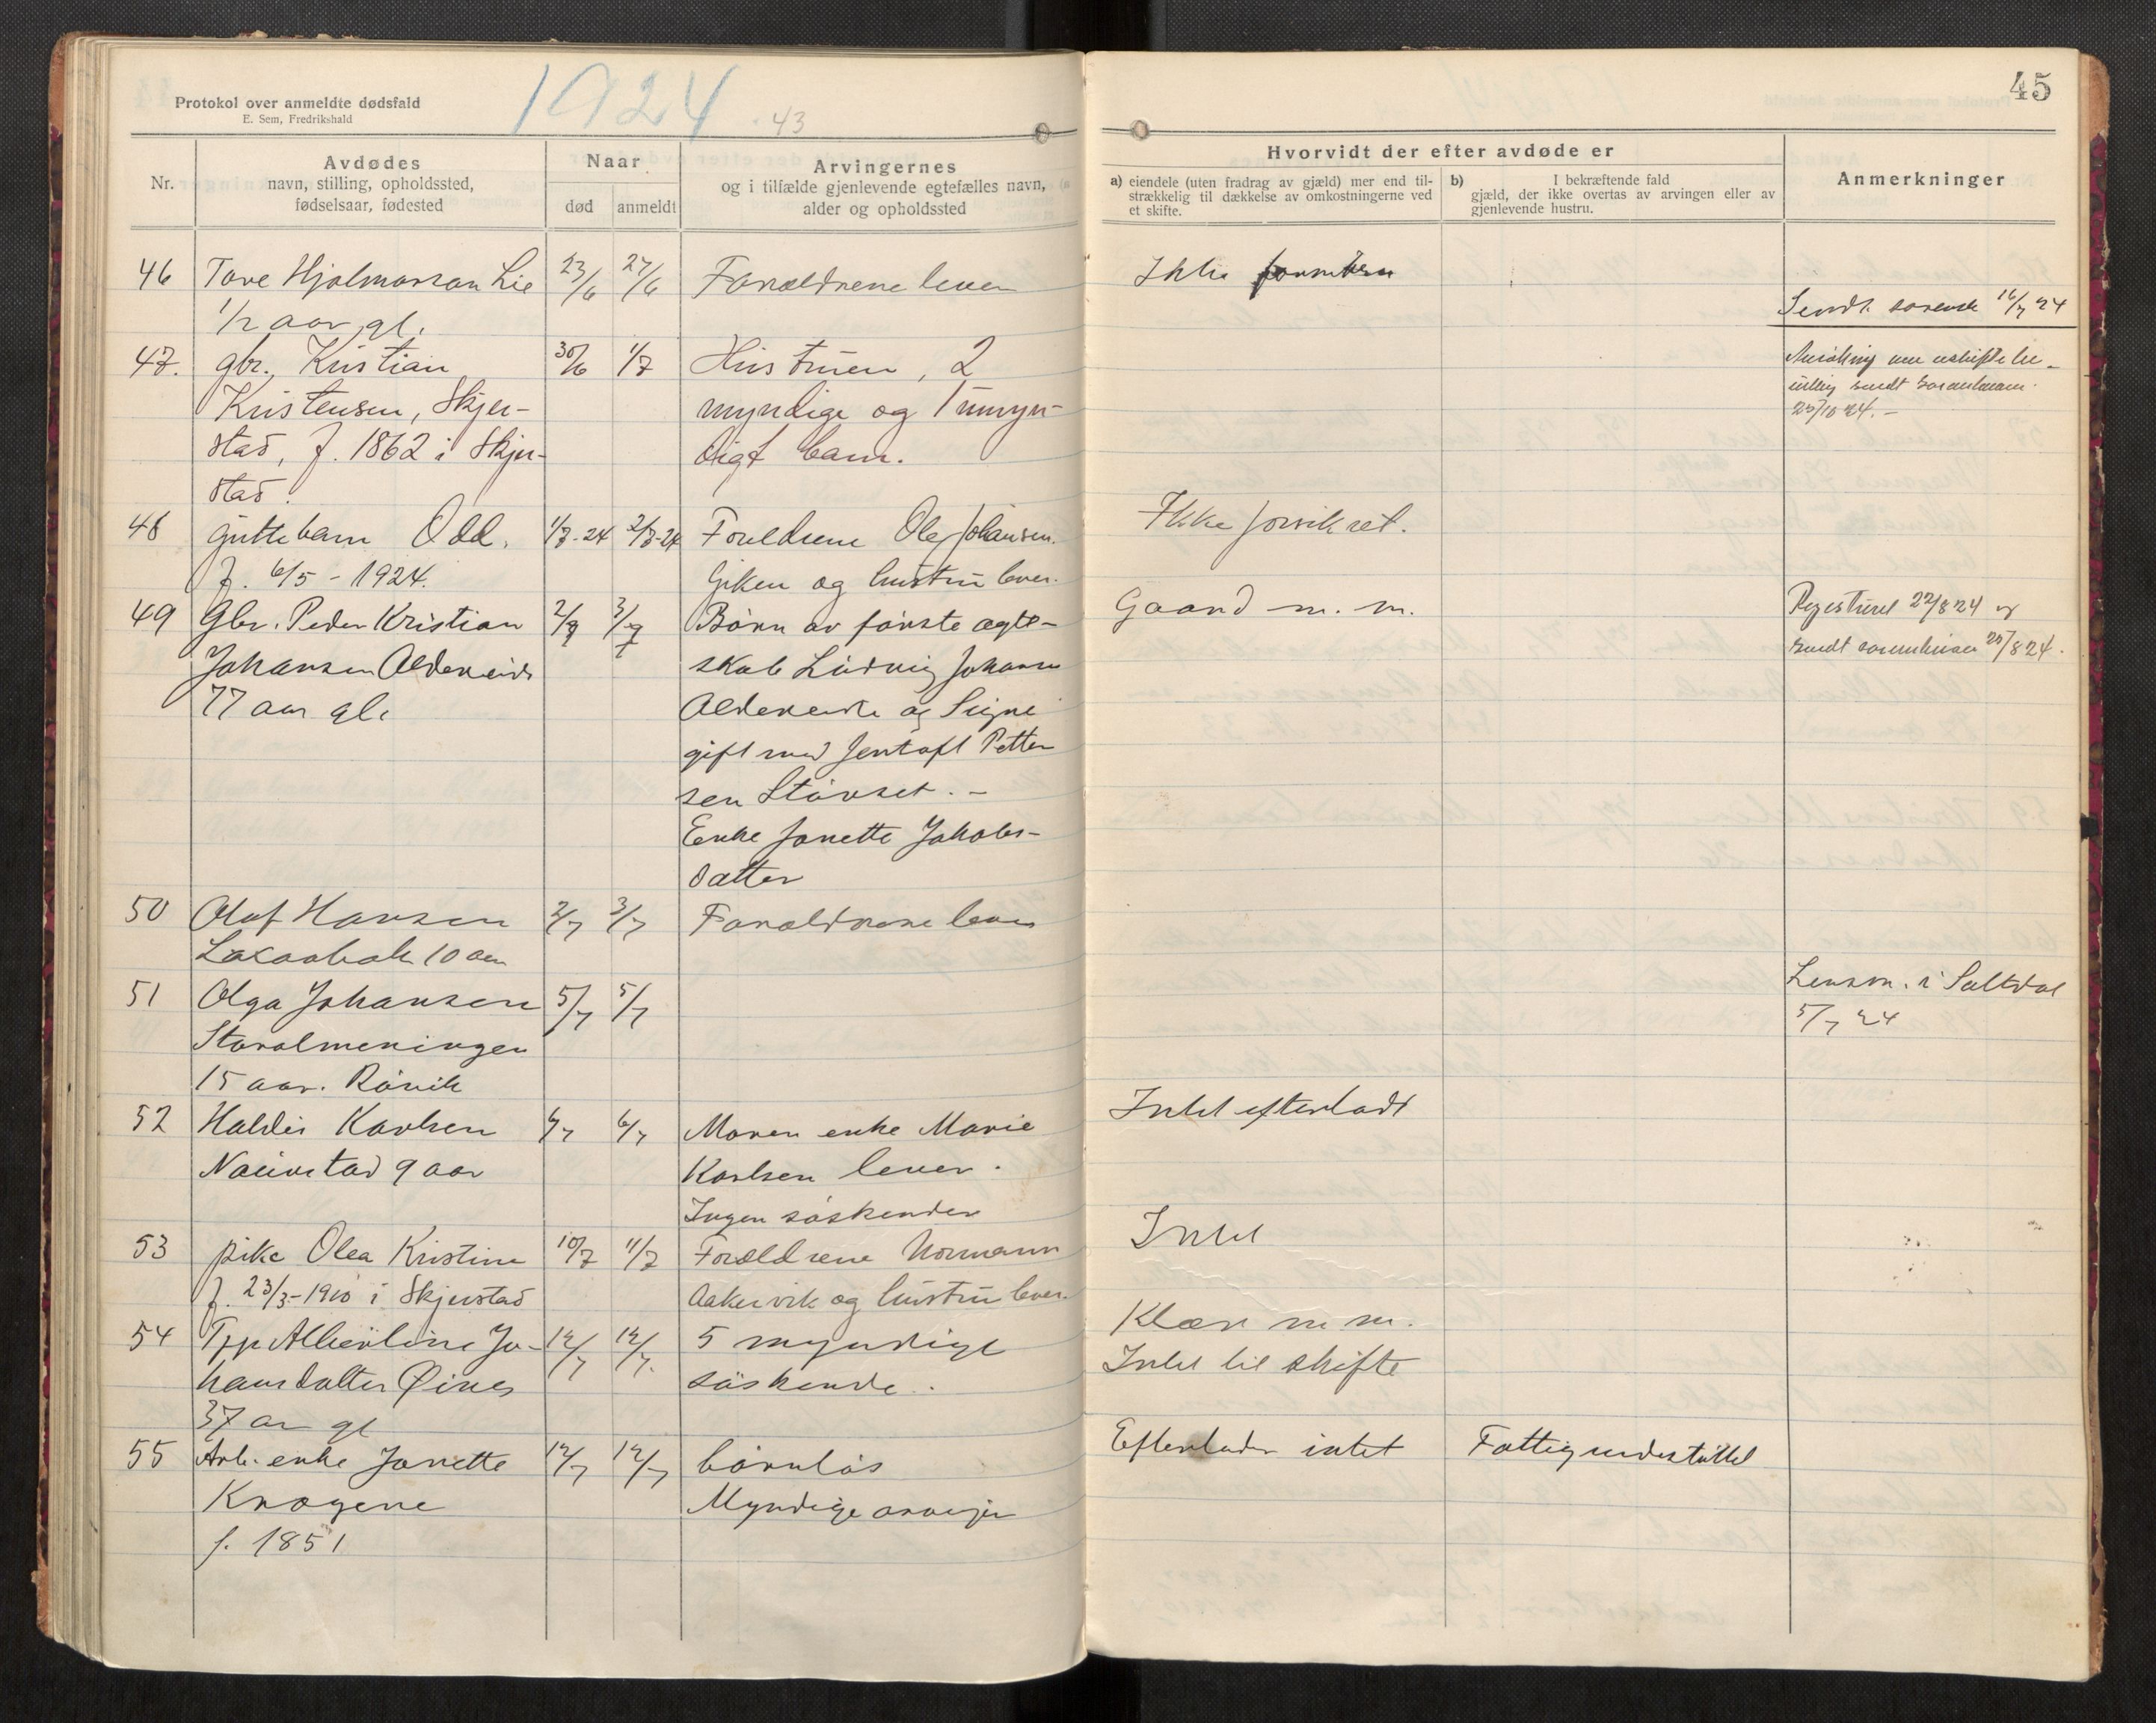 Protokol over anmeldte dødsfald
E. Sem, Fredrikshald
1924
43
45
Nr.
Avdødes
navn, stilling, opholdssted,
fødselsaar, fødested
Naar
død
anmeldt
Arvingernes
og i tilfælde gjenlevende egtefælles navn,
alder og opholdssted
Hvorvidt der efter avdøde er
a) eiendele (uten fradrag av gjæld) mer end til-
strækkelig til dækkelse av omkostningerne ved
et skifte.
b) I bekræftende fald
gjæld, der ikke overtas av arvingen eller av
gjenlevende hustru.
Anmerkninger
46 Tove Hjalmarsan Lie 23/6 27/6 Forældrene lever
1/2 aar gl.
Sendt sorensk 16/7 24
47. gbr. Kristian 30/6 1/7 Hustruen, 2
Kristensen, Skjer-
stad, f. 1862 i Skjer-
stad.
myndige og 1 umyn-
digt barn.
sendt
25/10 24. -
48 guttebarn Odd. 1/7-24 2/7-24 Foreldrene Ole Johansen
f. 6/5 - 1924.
og hustru lever.
Ikke forsikret.
49 Gbr. Peder Kristian 2/7 3/7 Børn av første ægte-
Johansen
77 aar gl.
skab Ludvig Johansen
og Signe
gift med Jentoft Petter
sen Størset. -
Enke Janette Jakobs-
datter
Gaard m. m.
Registrert 22/8 24 og
sendt 25/8 24.
50 Olaf Hansen 2/7 3/7 Forældrene lever
10 aar
51 Olga Johansen 5/7 5/7
Storalmeningen
15 aar. Røvik
Lensm. i Saltdal
5/7 24
52 Haldis Karlsen 6/7 Moren enke Marie
9 aar
Karlsen lever.
Ingen søskender
Intet efterladt
53 pike Olea Kristine 10/7 11/7 Forældrene Normann
f. 23/3-1910 i Skjerstad
Aakervik og hustru lever.
Intet
54 Jo- 12/7 12/7. 5 myndige
hansdatter Øines
37 aar gl
søskende.
Klær m m.
Intet til skifte
55 Arb. enke Janette 12/7 12/7 børnløs
f. 1851
Myndige arvinger
Efterlader intet
Fattigunderstøttet